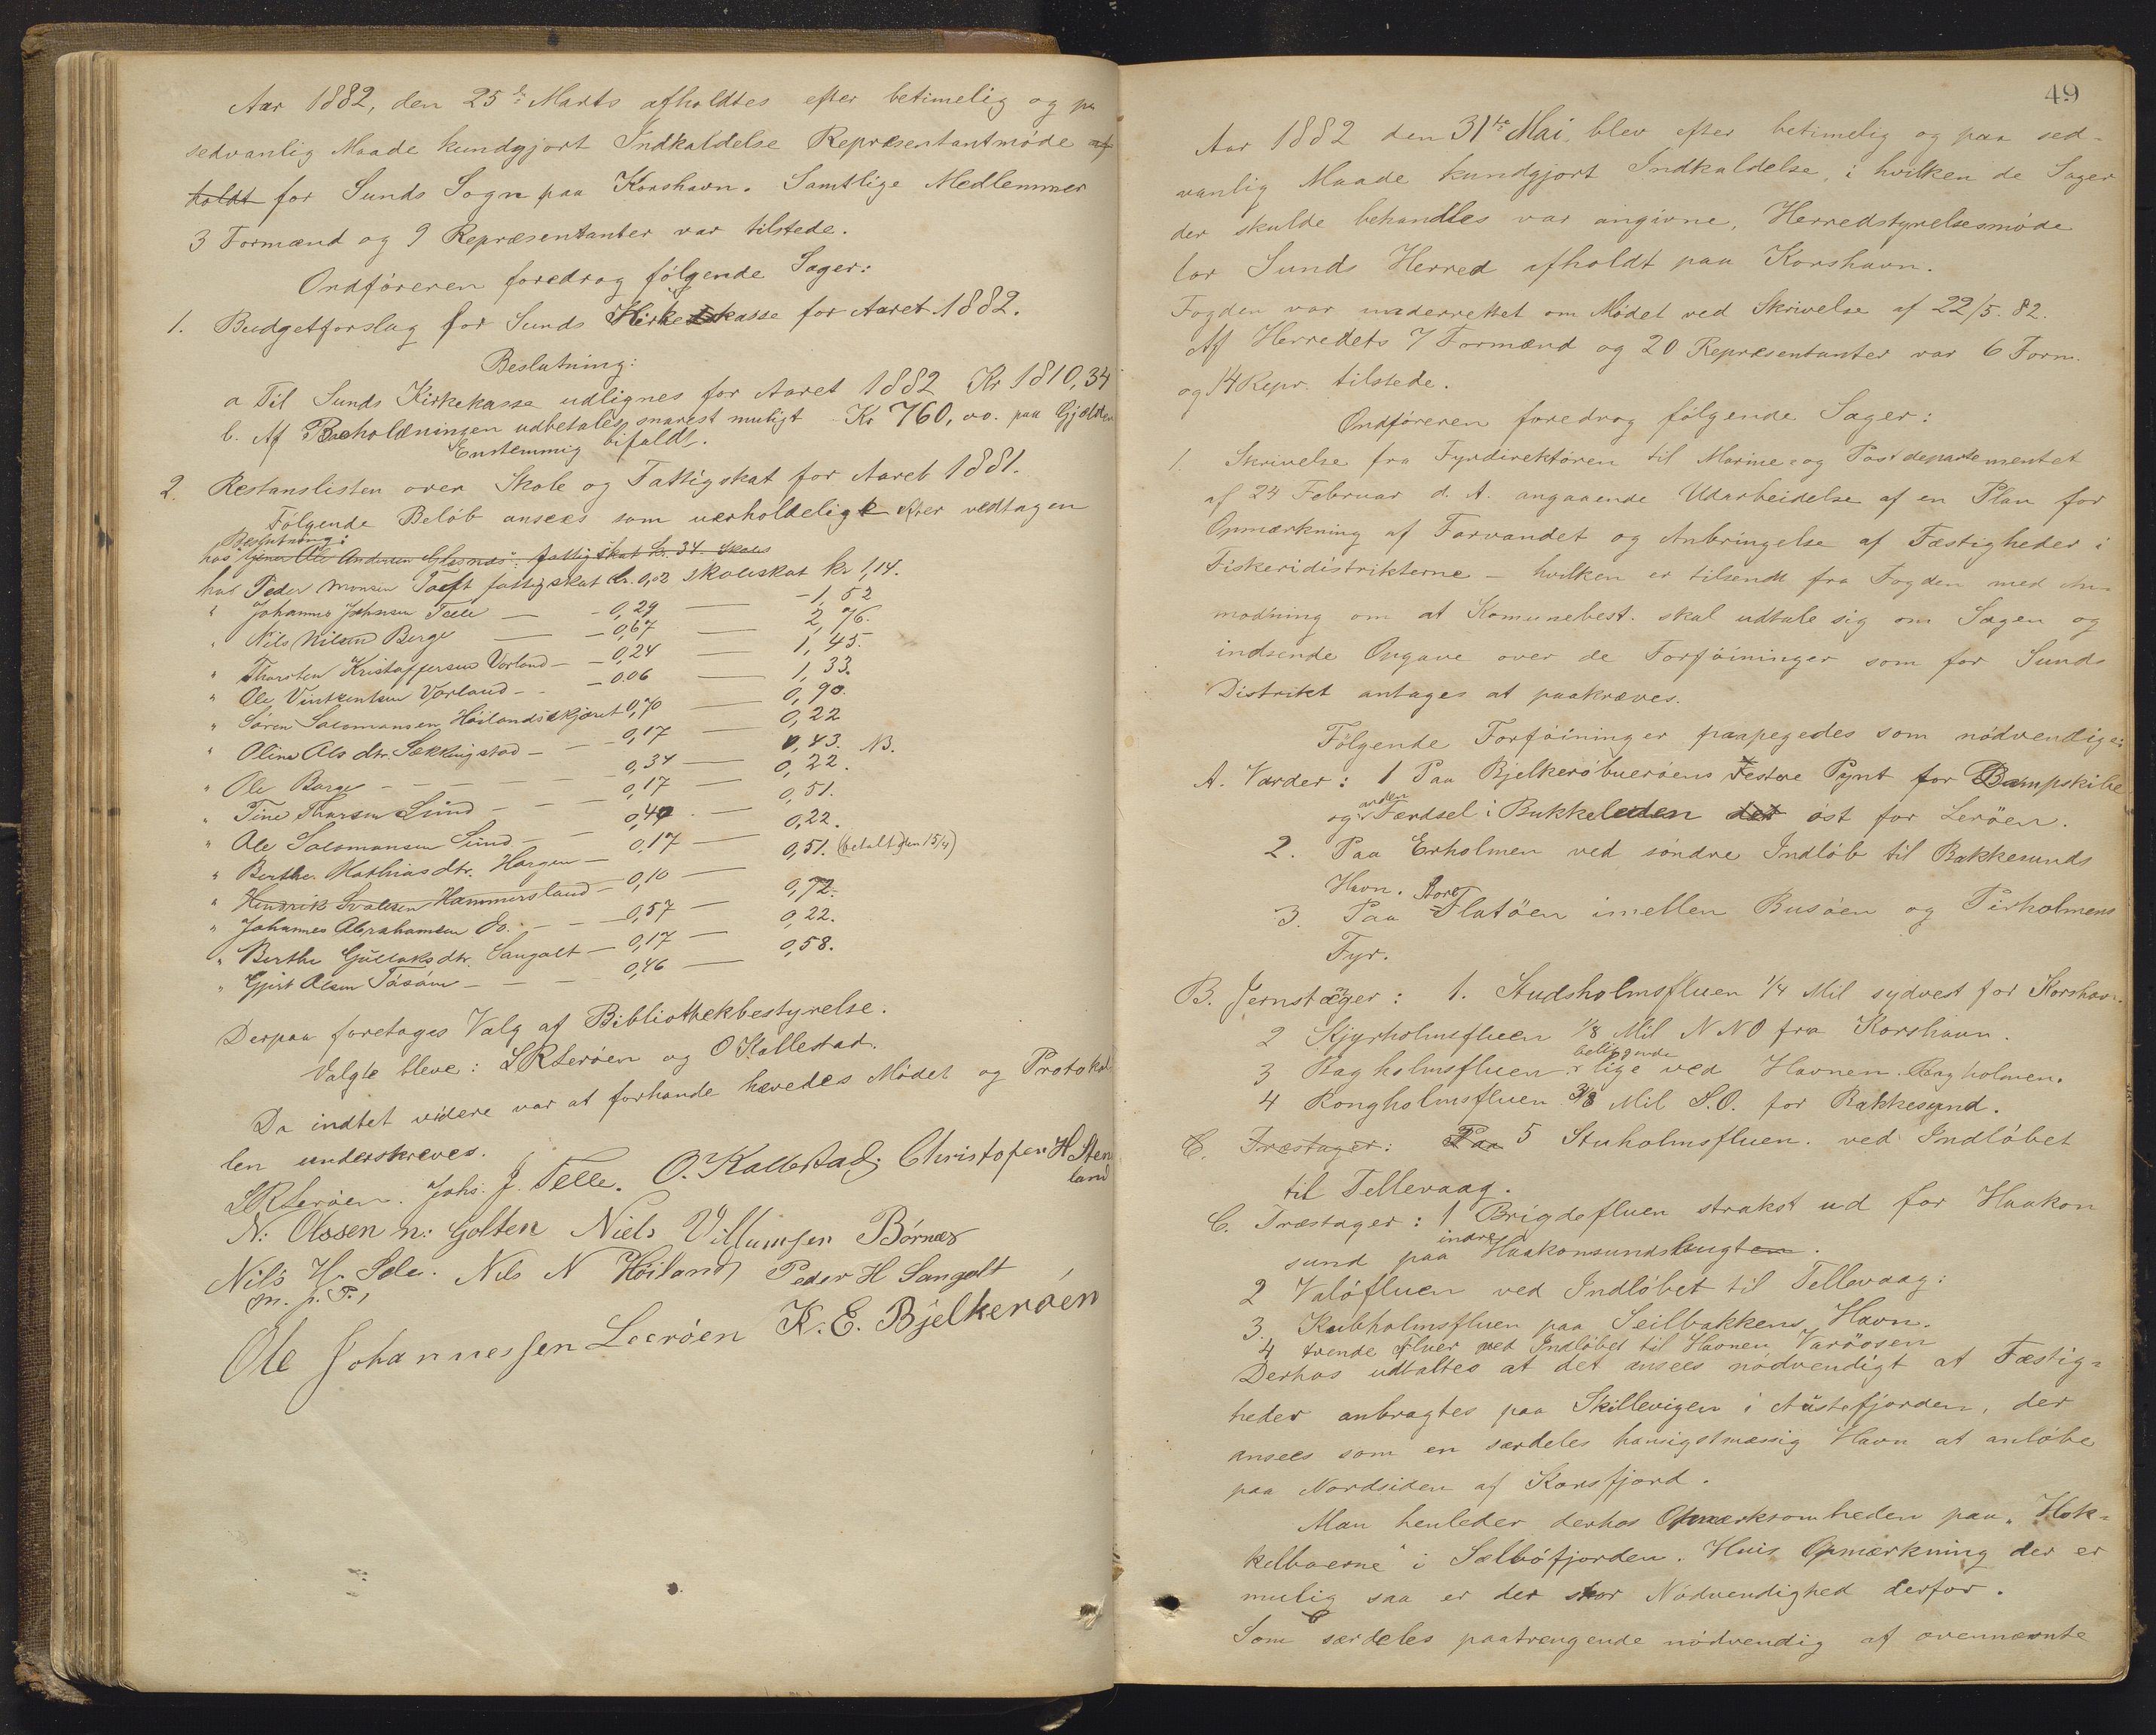 Aar 1882, den 25de Marts afholdtes efter betimelig og pa
sedvanlig Maade kundgjort Indkaldelse Repræsentantmøde af
holdt for Sunds Sogn paa Korshavn. Samtlige Medlemmer
3 Formænd og 9 Repræsentanter var tilstede.
Ordføreren foredrog følgende Sager:
1. Budgetforslag for Sunds Kirkekasse for Aaret 1882.
Beslutning:
a Til Sunds Kirkekasse udlignes for Aaret 1882 Kr 1810,34
b. Af Beholdningen udbetales snarest muligt Kr 760,00. paa Gjælden
Enstemmig bifaldt.
2. Restanslisten over Skole og Fattigskat for Aaret 1881.
Følgende Beløb ansees som uerholdelige efter vedtagen
Beslutning:
hos Ole Andersen Glesnæs: fattigskat kr. 34. Skoles
hos Peder Monsen Tofft fattigskat kr. 0,02 Skoleskat kr 1,14.
" Johannes Johnsen Telle — - 0,29 — - 1,52
" Nils Nilsen Berge — - 0,67 — 2,76.
" Thorsten Kristoffersen Vorland - - 0,24 — 1,45.
" Ole Vintzentsen Vorland - - - 0.06 — 1,33.
" Søren Salomonsen Høilandskjæret 0,70 — 0,90.
" Oline Ols dtr. Sækkingstad - - - 0,17 — 0,22
" Ole Borge - - - 0,34 — 0,43. NB.
" Tine Thorsen Sund - - - 0,17 — 0,22.
" Ole Salomonsen Sund - - 0,40 — 0,51.
" Berthe Mathiasdtr. Hargen - 0,17 — 0,22.
" Hendrik Hammersland - 0,10 — 0,51. (betalt den 15/4)
" Johannes Abrahamsen do. - - 0,57 — 0,72.
" Berthe Gullaksdtr. Sangolt - 0,17 — 0,22.
" Gjert Olsen Tøsøen - - - 0,46 — 0,58.
Derpaa foretoges Valg af Bibliothekbestyrelse.
Valgte bleve: S R Lerøen og O Kallestad.
Da indtet videre var at forhande hævedes Mødet og Protokol
len underskreves.
S R Lerøen. Johs. J. Telle. O. Kallestad, Christofer H Sten
land
N. Olssen n: Golten Niels Villumsen Börnæs
Nils H. Sele. Nils N Höiland Peder H Sangolt
m. p. P.,
Ole Johannessen Leeröen K. E. Bjelkeröen
49
Aar 1882 den 31te Mai, blev efter betimelig og paa sed-
vanlig Maade kundgjort Indkaldelse, i hvilken de Sager
der skulde behandles var angivne, Herredstyrelsesmøde
for Sunds Herred afholdt paa Korshavn.
Fogden var underrettet om Mødet ved Skrivelse af 22/5. 82.
Af Herredets 7 Formænd og 20 Repræsentanter var 6 Form.
og 14 Repr. tilstede.
Ordføreren foredrog følgende Sager:
1. Skrivelse fra Fyrdirektøren til Marine- og Postdepartementet
af 24 Februar d. A. angaaende Udarbeidelse af en Plan for
Opmærkning af Farvandet og Anbringelse af Fæstigheder i
Fiskeridistrikterne - hvilken er tilsendt fra Fogden med An-
modning om at Komunebest. skal udtale sig om Sagen og
indsende Opgave over de Forføininger som for Sunds
Distrikt antages at paakræves.
Følgende Forføininger paapegedes som nødvendige:
A. Varder: 1 Paa Bjelkerøbuerøens Vestre Pynt for Dampskibe
og anden Færdsel i Bukkeleden det øst for Lerøen.
2. Paa Erholmen ved søndre Indløb til Bakkesunds
Havn.
3. Paa Store Flatøen imellen Busøen og Pirholmens
Fyr.
B. Jernstager: 1. Studsholmsfluen 1/4 Mil sydvest for Korshavn.
2 Kjyrholmsfluen 1/8 Mil NNO fra Korshavn.
3 Bagholmsfluen beliggende r lige ved Havnen Bagholmen.
4 Rongholmsfluen 3/8 Mil S.O. for Bakkesund.
C. Træstager: Paa 5 Stuholmsfluen. ved Indløbet
til Tellevaag.
C. Træstager: 1 Brigdefluen strakst ud for Haakon
sund paa indre Haakonsundsbugten.
2 Valøfluen ved Indløbet til Tellevaag:
3. Kubholmsfluen paa Seilbakkens Havn.
4 trende Fluer ved Indløbet til Havnen Varøosen
Derhos udtaltes at det ansees nødvendigt at Fæstig=
heder anbragtes paa Skillevigen i Austefjorden, der
ansees som en særdeles hansigstmæssig Havn at anløbe
paa Nordsiden af Korsfjord.
Man henleder derhos Opmærksomheden paa "Hok=
kelboerne" i Sælbøfjorden. Hvis Opmærkning der er
mulig saa er der stor Nødvendighed derfor.
Som særdeles paatrengende nødvendig af ovennævnte